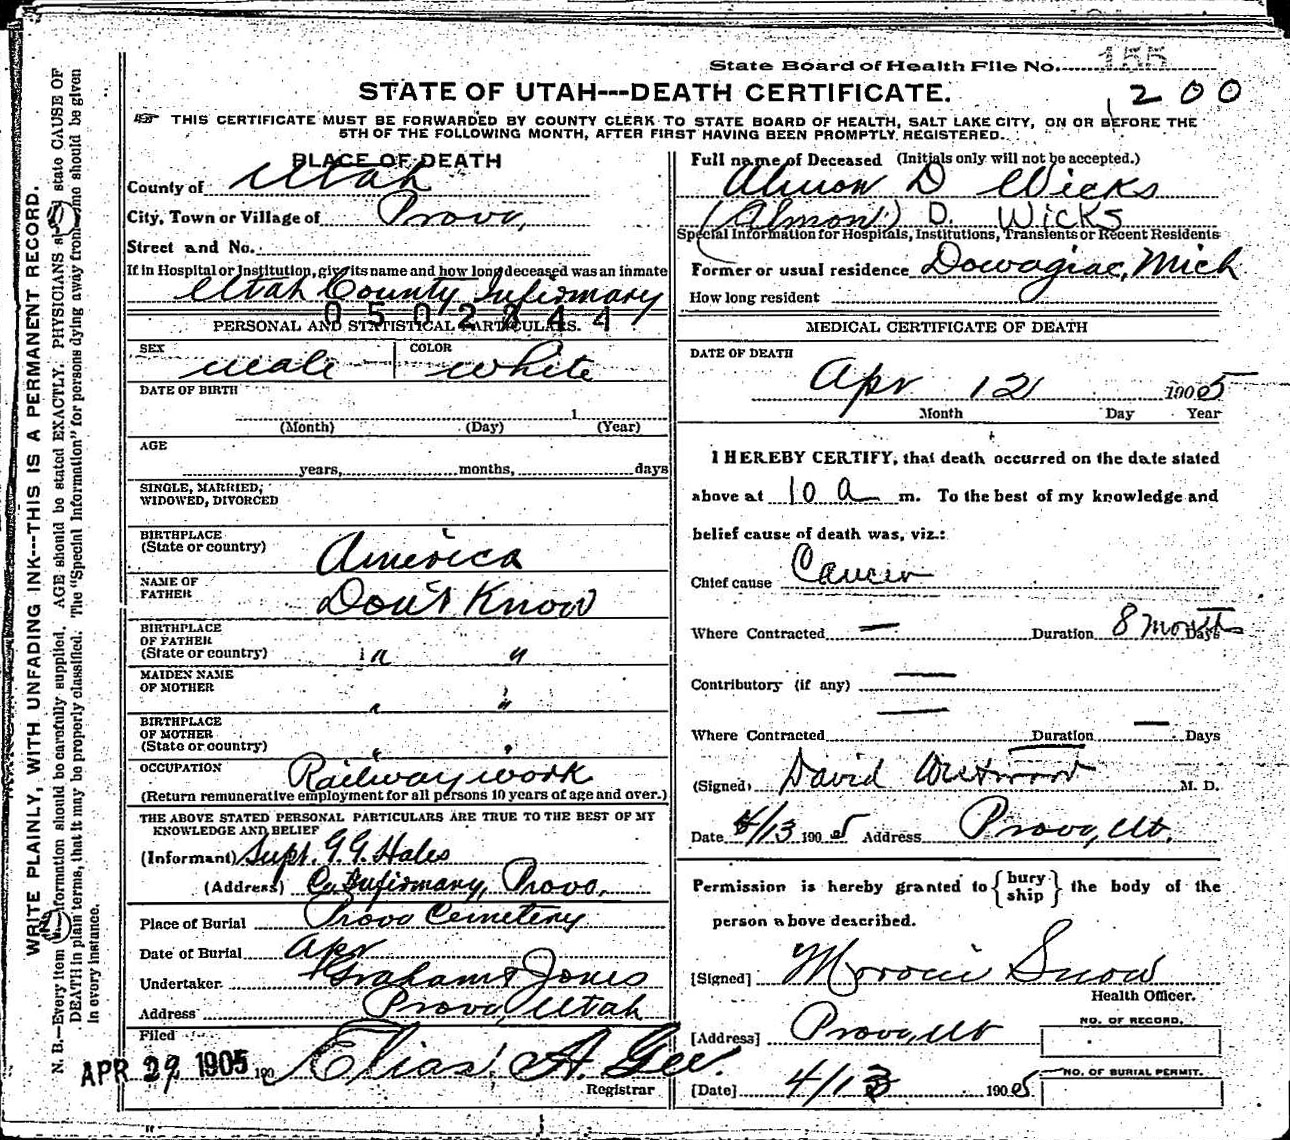 State Board of Health File No. 155
STATE OF UTAH---DEATH CERTIFICATE.
1200
THIS CERTIFICATE MUST BE FORWARDED BY COUNTY CLERK TO STATE BOARD OF HEALTH, SALT LAKE CITY, ON OR BEFORE THE
5TH OF THE FOLLOWING MONTH, AFTER FIRST HAVING BEEN PROMPTLY REGISTERED.
WRITE PLAINLY, WITH UNFADING INK---THIS IS A PERMANENT RECORD.
N. B.—Every item information should be carefully supplied. AGE should be stated EXACTLY. PHYSICIANS state CAUSE OF
DEATH in plain terms, that it may be properly classified. The "Special Information" for persons dying away from should be given
in every instance.
PLACE OF DEATH
County of Utah
City, Town or Village of Provo,
Street and No.
If in Hospital or Institution, give its name and how long deceased was an inmate
Utah County Infirmary
0502844
PERSONAL AND STATISTICAL PARTICULARS.
SEX male COLOR white
DATE OF BIRTH
1
(Month) (Day) (Year)
AGE
years, months, days
SINGLE, MARRIED,
WIDOWED, DIVORCED
BIRTHPLACE
(State or country) America
NAME OF
FATHER Don't Know
BIRTHPLACE
OF FATHER
(State or country) " "
MAIDEN NAME
OF MOTHER " "
BIRTHPLACE
OF MOTHER
(State or country) " "
OCCUPATION Railway work
(Return remunerative employment for all persons 10 years of age and over.)
THE ABOVE STATED PERSONAL PARTICULARS ARE TRUE TO THE BEST OF MY
KNOWLEDGE AND BELIEF
(Informant) Supt. G. G. Hales
(Address) Co Infirmary, Provo.
Place of Burial Provo Cemetery
Date of Burial Apr
Undertaker Graham & Jones
Address Provo, Utah
Filed
APR 29 1905 190 Elias A. Gee.
Registrar
Full name of Deceased (Initials only will not be accepted.)
Almon D Wicks
(Almon) D. WICKS
Special Information for Hospitals, Institutions, Transients or Recent Residents
Former or usual residence Dowagiac, Mich
How long resident
MEDICAL CERTIFICATE OF DEATH
DATE OF DEATH
Apr 12 1905
Month Day Year
I HEREBY CERTIFY, that death occurred on the date stated
above at 10 a m. To the best of my knowledge and
belief cause of death was, viz.:
Chief cause Cancer
Where Contracted — Duration 8 months Days
Contributory (if any) —
Where Contracted — Duration — Days
(Signed) David Westwood M. D.
Date 4/13 1905 Address Provo, Ut.
Permission is hereby granted to { bury ship } the body of the
person above described.
[Signed] Moroni Snow
Health Officer.
[Address] Provo, Ut
[Date] 4/13 1905
NO. OF RECORD.
NO. OF BURIAL PERMIT.